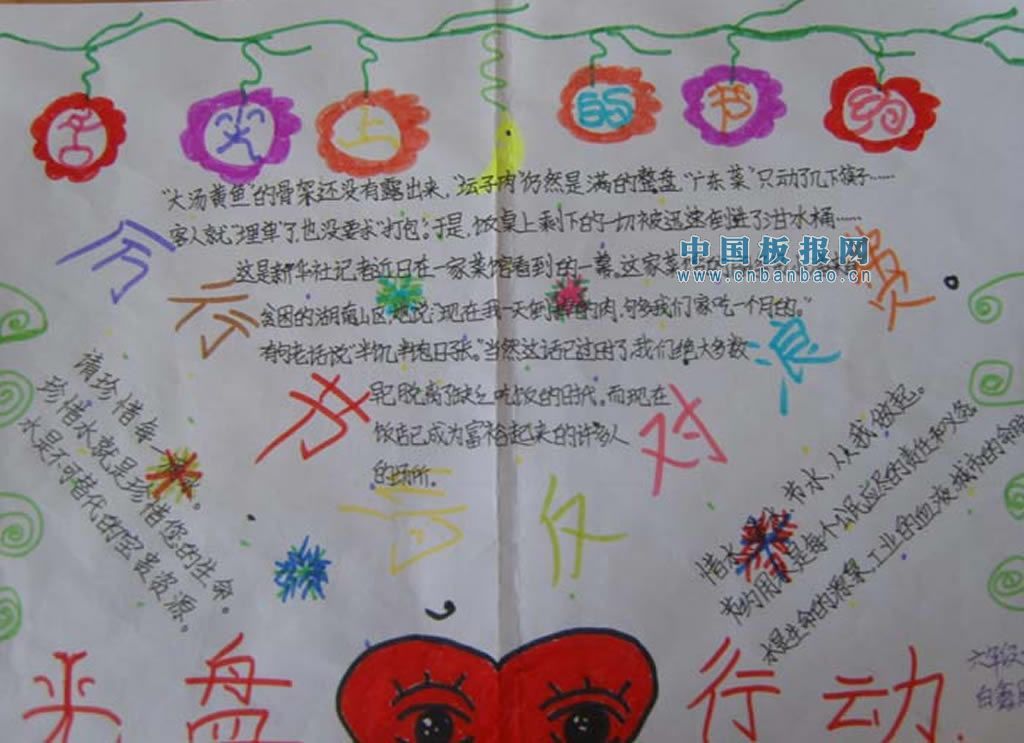 舌尖上的节约
"大汤黄鱼"的骨架还没有露出来,"坛子肉"仍然是满的整盘,"广东菜"只动了几下筷子……
客人就"埋单"了,也没要求"打包"。于是,饭桌上剩下的一切被迅速倒进了泔水桶……
这是新华社记者近日在一家菜馆看到的一幕。这家菜
贫困的湖南山区,她说:"现在我一天倒掉的肉,可够我们家吃一个月的。"
有句老话说"半饥半饱日子长。"当然这话已过时了,我们绝大多数
早已脱离了缺乏吃饭的时代。而现在
饭店已成为富裕起来的许多人
的场所。
厉行节约 反对浪费
请珍惜每一
珍惜水就是珍惜您的生命。
水是不可替代的宝贵资源。
惜水 节水,从我做起。
节约用水是每个公民应尽的责任和义务
水是生命的源泉,工业的血液,城市的命脉
光盘
行动
六年级
中国板报网
www.cnbanbao.cn